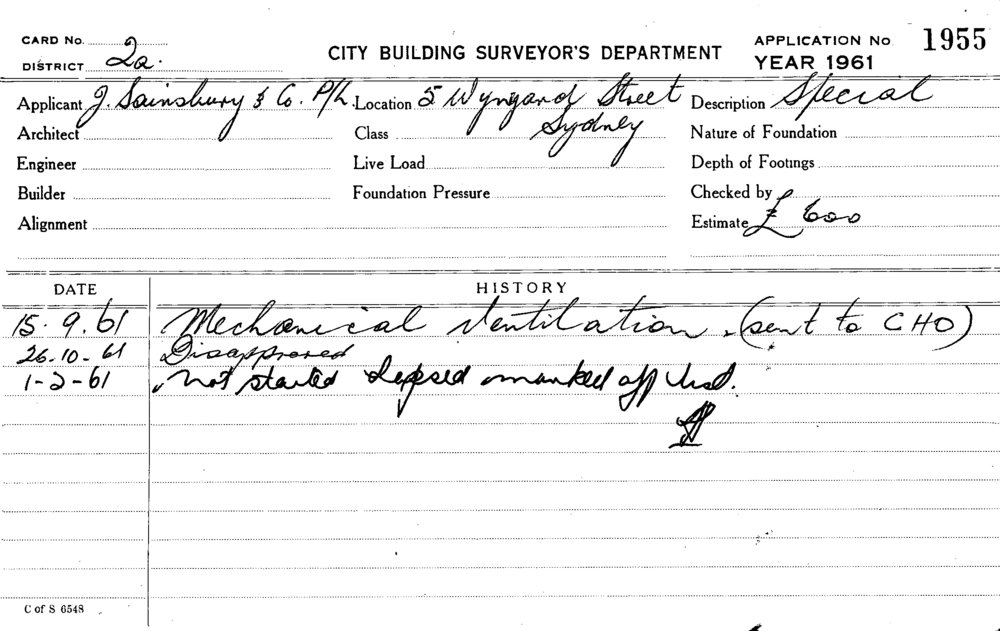 CARD No.
DISTRICT 2a.
CITY BUILDING SURVEYOR'S DEPARTMENT
APPLICATION No 1955
YEAR 1961
Applicant J. Sainsbury & Co. P/L. Location 5 Wynyard Street Description Special
Sydney
Architect Class Nature of Foundation
Engineer Live Load Depth of Footings
Builder Foundation Pressure Checked by
Alignment Estimate £ 600
DATE HISTORY
15.9.61 Mechanical Ventilation. (sent to CHO)
26-10-61 Disapproved
1-2-61 Not started Lapsed marked off list.
C of S 6548